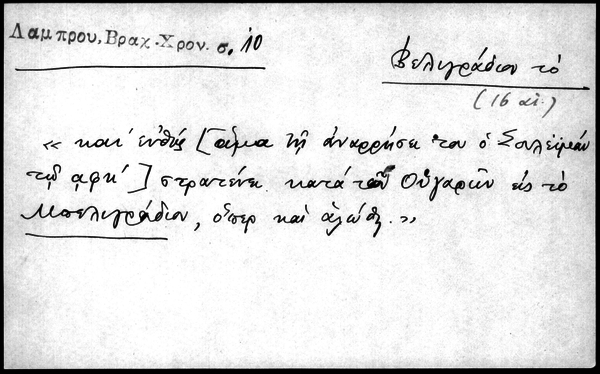 Λαμπρου, Βραχ. Χρον. σ. 10
Βελιγράδιον τό
(16 αἰ.)
« καί εὐθύς [ἅμα τῇ ἀναρρήσει του ὁ Σουλεϊμάν
τῷ αφκʹ] στρατεύει κατά τῶν Οὑγαρῶν εἰς τό
Μπελιγράδιον, ὅπερ καί ἑλώθη. »